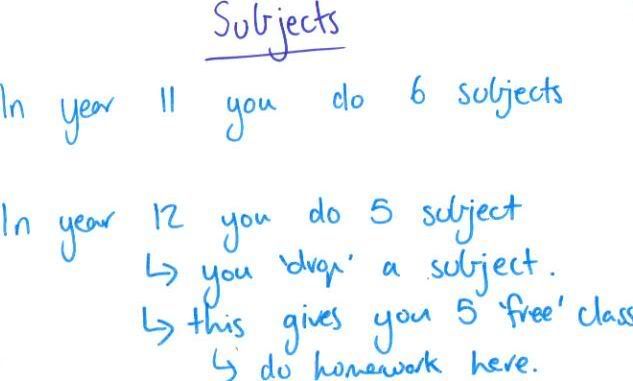 Subjects
In year 11 you do 6 subjects
In year 12 you do 5 subject
↳ you 'drop' a subject.
↳ this gives you 5 'free' class
↳ do homework here.